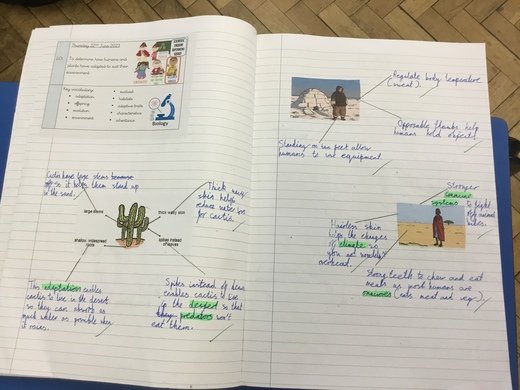 Thursday 22nd June 2023
LO:
To determine how humans and
plants have adapted to suit their
environment.
Key vocabulary:
adaptation
offspring
evolution
environment
evolved
habitats
adaptive traits
characteristics
inheritance
Biology
Cacti have large stems
so it helps them stand up
in the sand.
Thick waxy
skin helps
reduce water loss
for cactus.
large stems
thick waxy skin
shallow, widespread
roots
spikes instead of
leaves
This adaptation enables
cactus to live in the desert
so they can absorb as
much water as possible when
it rains.
Spikes instead of leaves
enables cactus to live
in the desert so that
predators won't
eat them.
Regulate body temperature
(sweat).
Opposable thumbs help
humans hold objects.
Standing on two feet allow
humans to use equipment.
Stronger
immune
systems to fight
Hairless skin
helps the changes
of climate so
you are
overheat.
Strong teeth to chew and eat
meals as most humans are
omnivores (eats meat and veg).